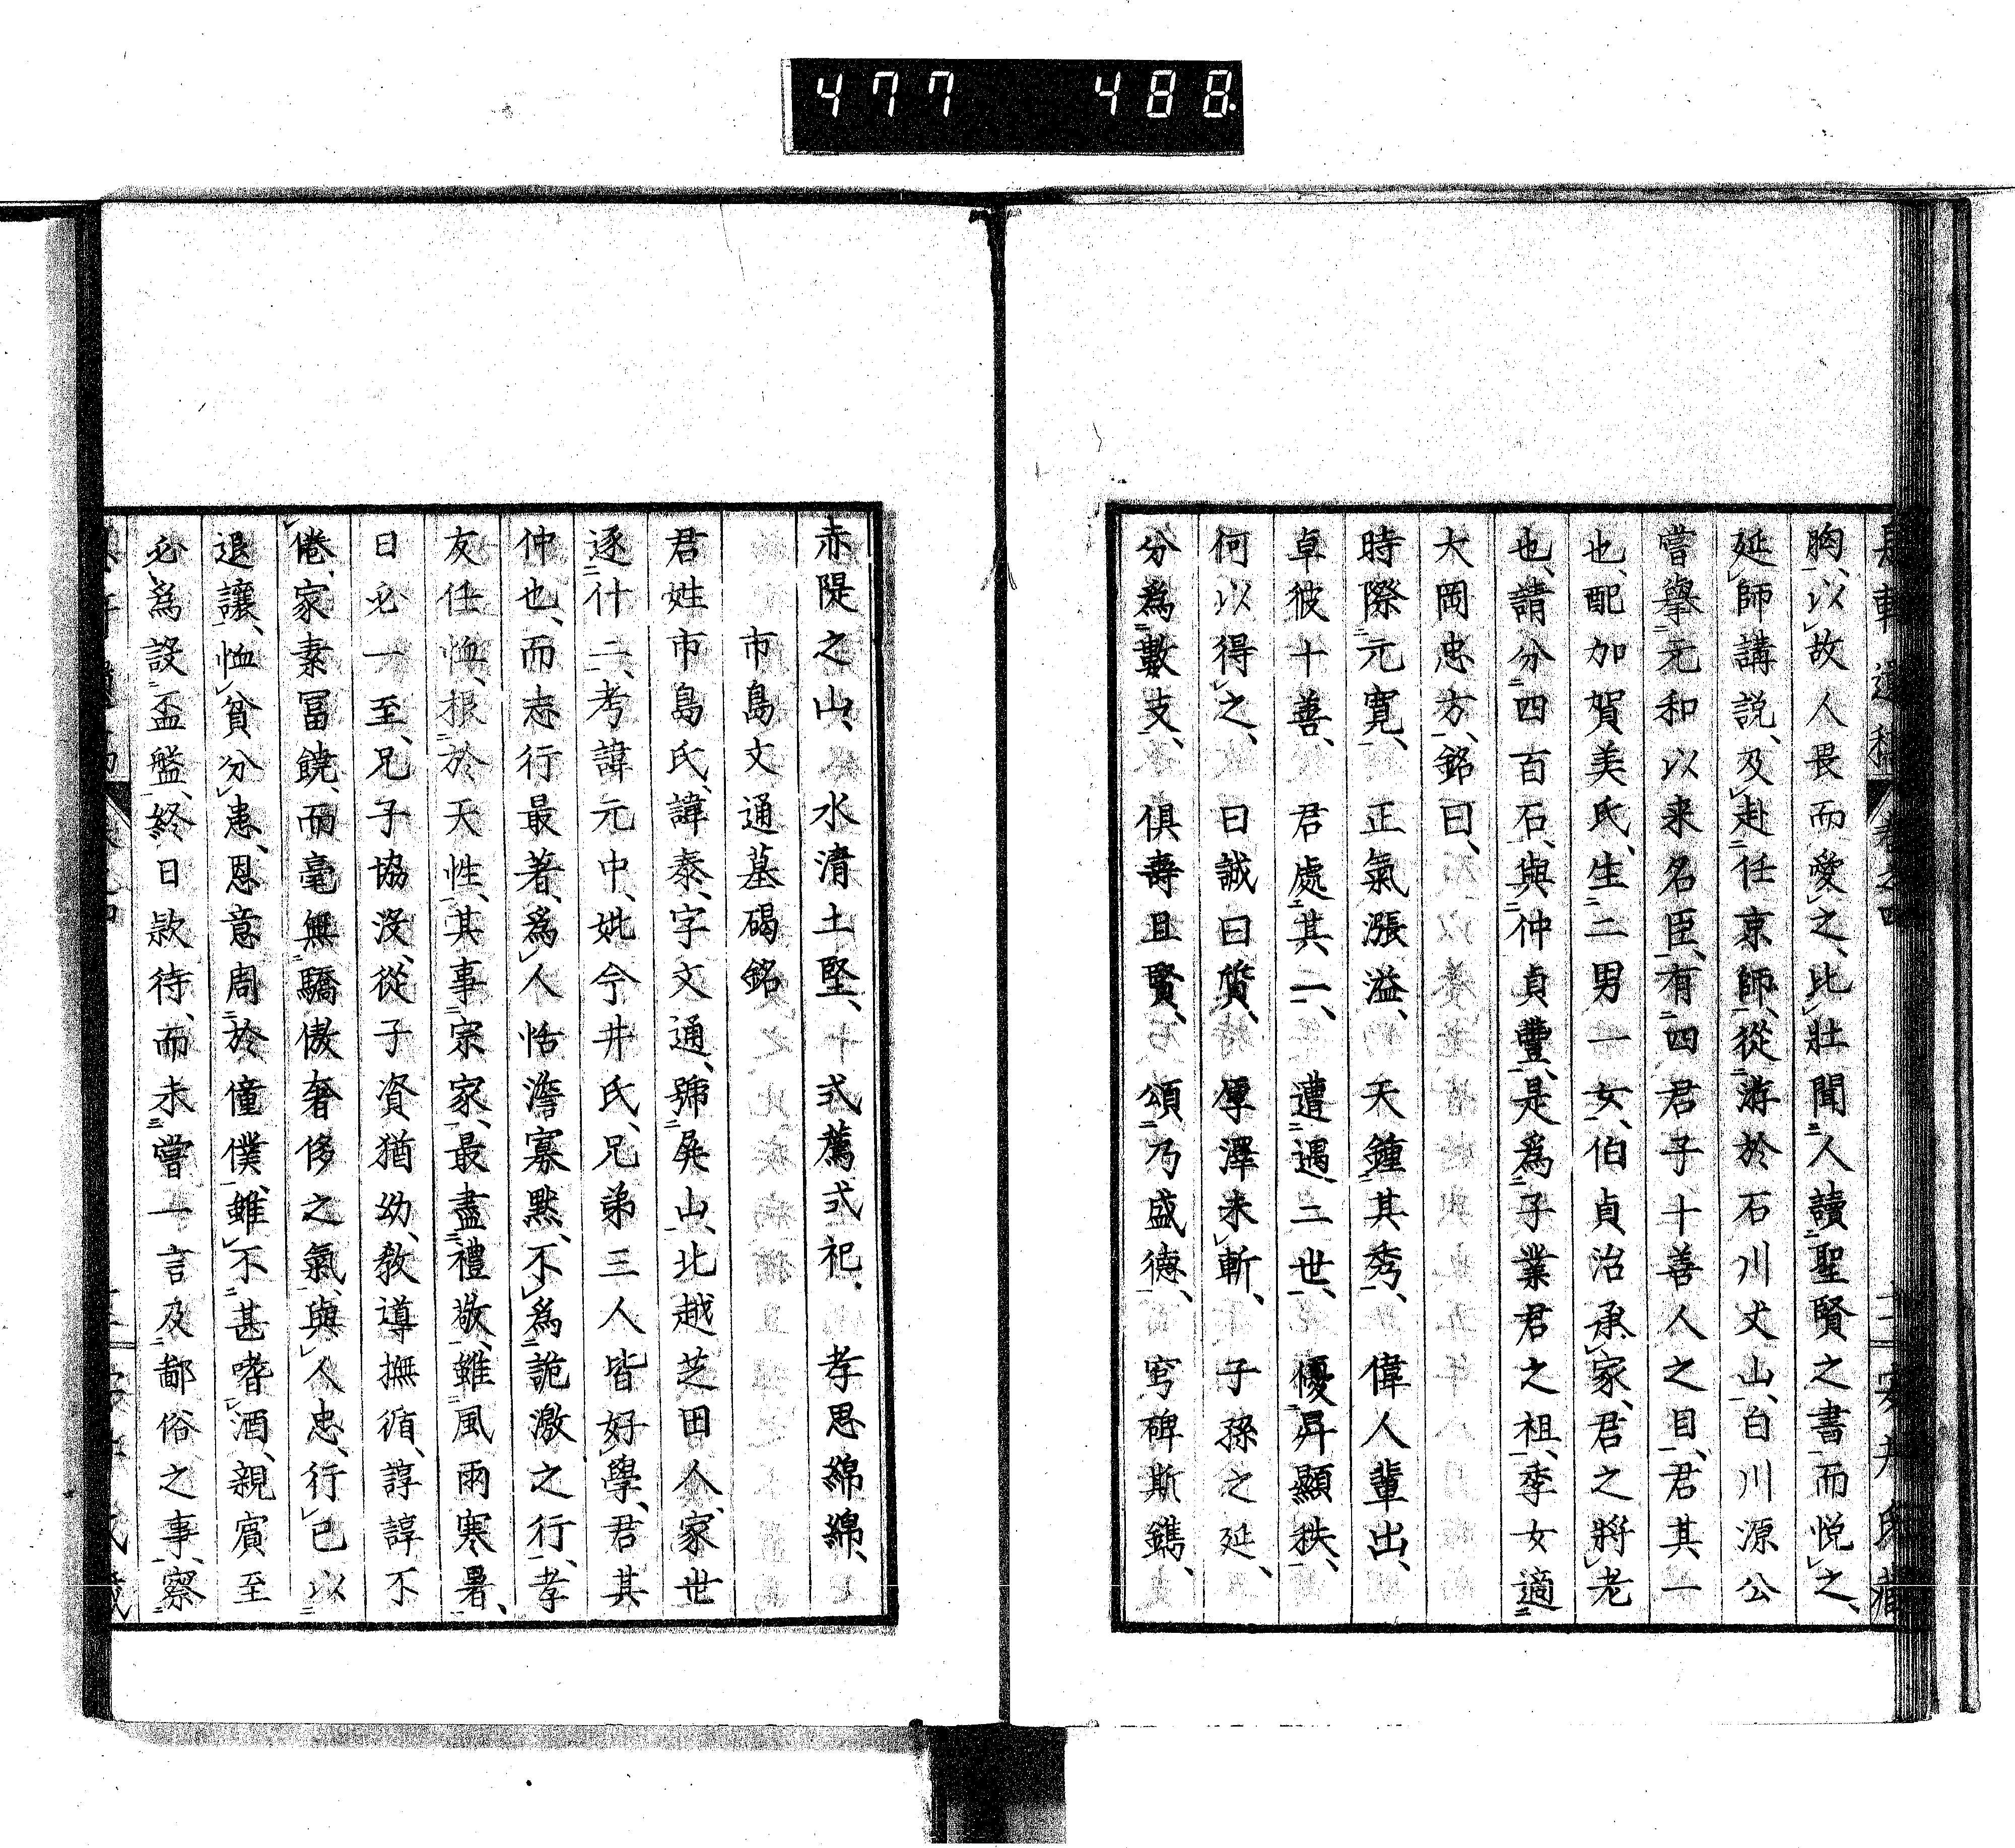 477 488
胸、以故人畏而愛之、比壯聞人讀聖賢之書而悦之、
延師講説、及赴任京師、從游於石川丈山、白川源公
嘗擧元和以来名臣、有四君子十善人之目、君其一
也、配加賀美氏、生二男一女、伯貞治承家、君之將老
也、請分四百石、與仲貞豐、是爲子業君之祖、季女適
大岡忠方、銘曰、
時際元寛、正氣漲溢、天鍾其秀、偉人輩出、
卓彼十善、君處其一、遭遇二世、優昇顯秩、
何以得之、曰誠曰質、厚澤未斬、子孫之延、
分爲數支、俱壽且賢、頌乃盛德、穹碑斯鐫、
赤隄之山、水清土堅、弌薦弌祀、孝思綿綿、
市島文通墓碣銘
君姓市島氏、諱泰、字文通、號矦山、北越芝田人、家世
逐什二、考諱元中、妣今井氏、兄弟三人皆好學、君其
仲也、而志行最著、爲人恬澹寡默、不爲詭激之行、孝
友任恤、根於天性、其事宗家、最盡禮敬、雖風雨寒暑、
日必一至、兄子協沒、從子資猶幼、教導撫循、諄諄不
倦、家素冨饒、而毫無驕傲奢侈之氣、與人忠、行已以
退讓、恤貧分患、恩意周於僮僕、雖不甚嗜酒、親賓至
必爲設盃盤、終日款待、而未嘗一言及鄙俗之事、察